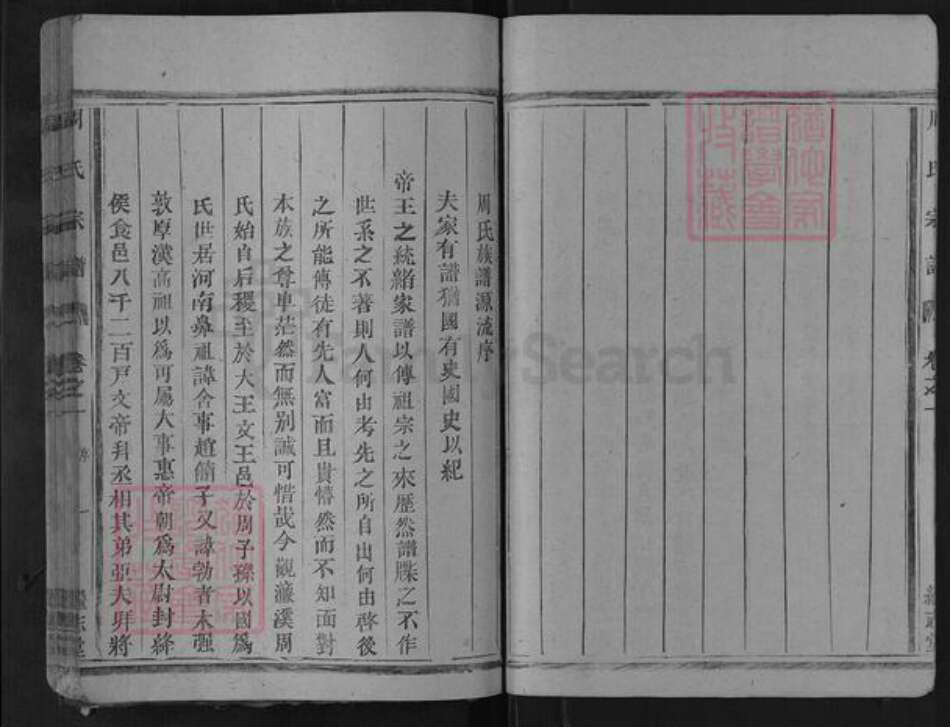 周氏宗譜 卷之一
周氏族譜源流序
夫家有譜猶國有史國史以紀
帝王之統緒家譜以傳祖宗之來歷然譜牒之不作
世系之不著則人何由考先之所自出何由啓後
之所能傳徒有先人富而且貴懵然而不知面對
本族之尊卑茫然而無別誠可惜哉今觀濂溪周
氏始自后稷至於大王文王邑於周子孫以國爲
氏世居河南鼻祖諱舍事趙簡子又諱勃者木强
敦厚漢高祖以爲可屬大事惠帝朝爲太尉封絳
侯食邑八千二百戸文帝拜丞相其弟亞夫拜將
周氏宗譜 卷之一 序 一
FamilySearch